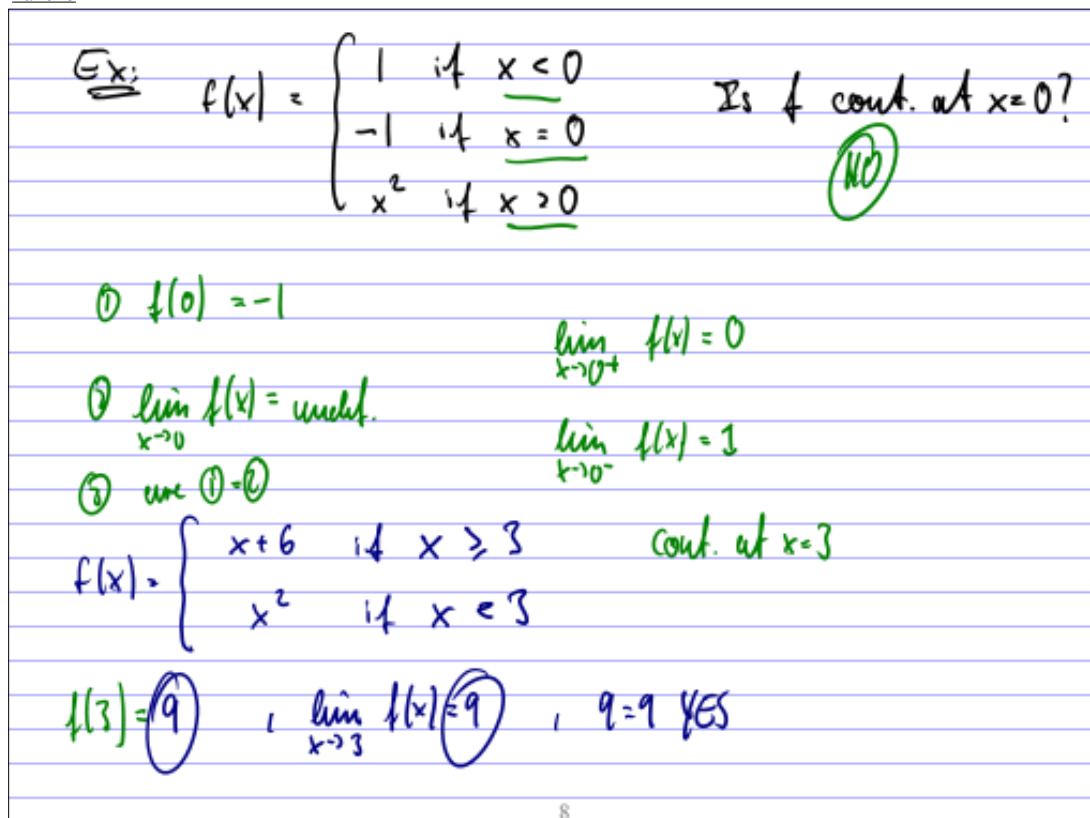 Ex: f(x) = { 1 if x < 0
-1 if x = 0
x² if x > 0
Is f cont. at x=0?
NO
① f(0) = -1
lim x→0+ f(x) = 0
② lim x→0 f(x) = undef.
lim x→0- f(x) = 1
③ ①=②
f(x) = { x+6 if x ≥ 3
x² if x < 3
cont. at x=3
f(3)=9 , lim x→3 f(x)=9 , 9=9 YES
8